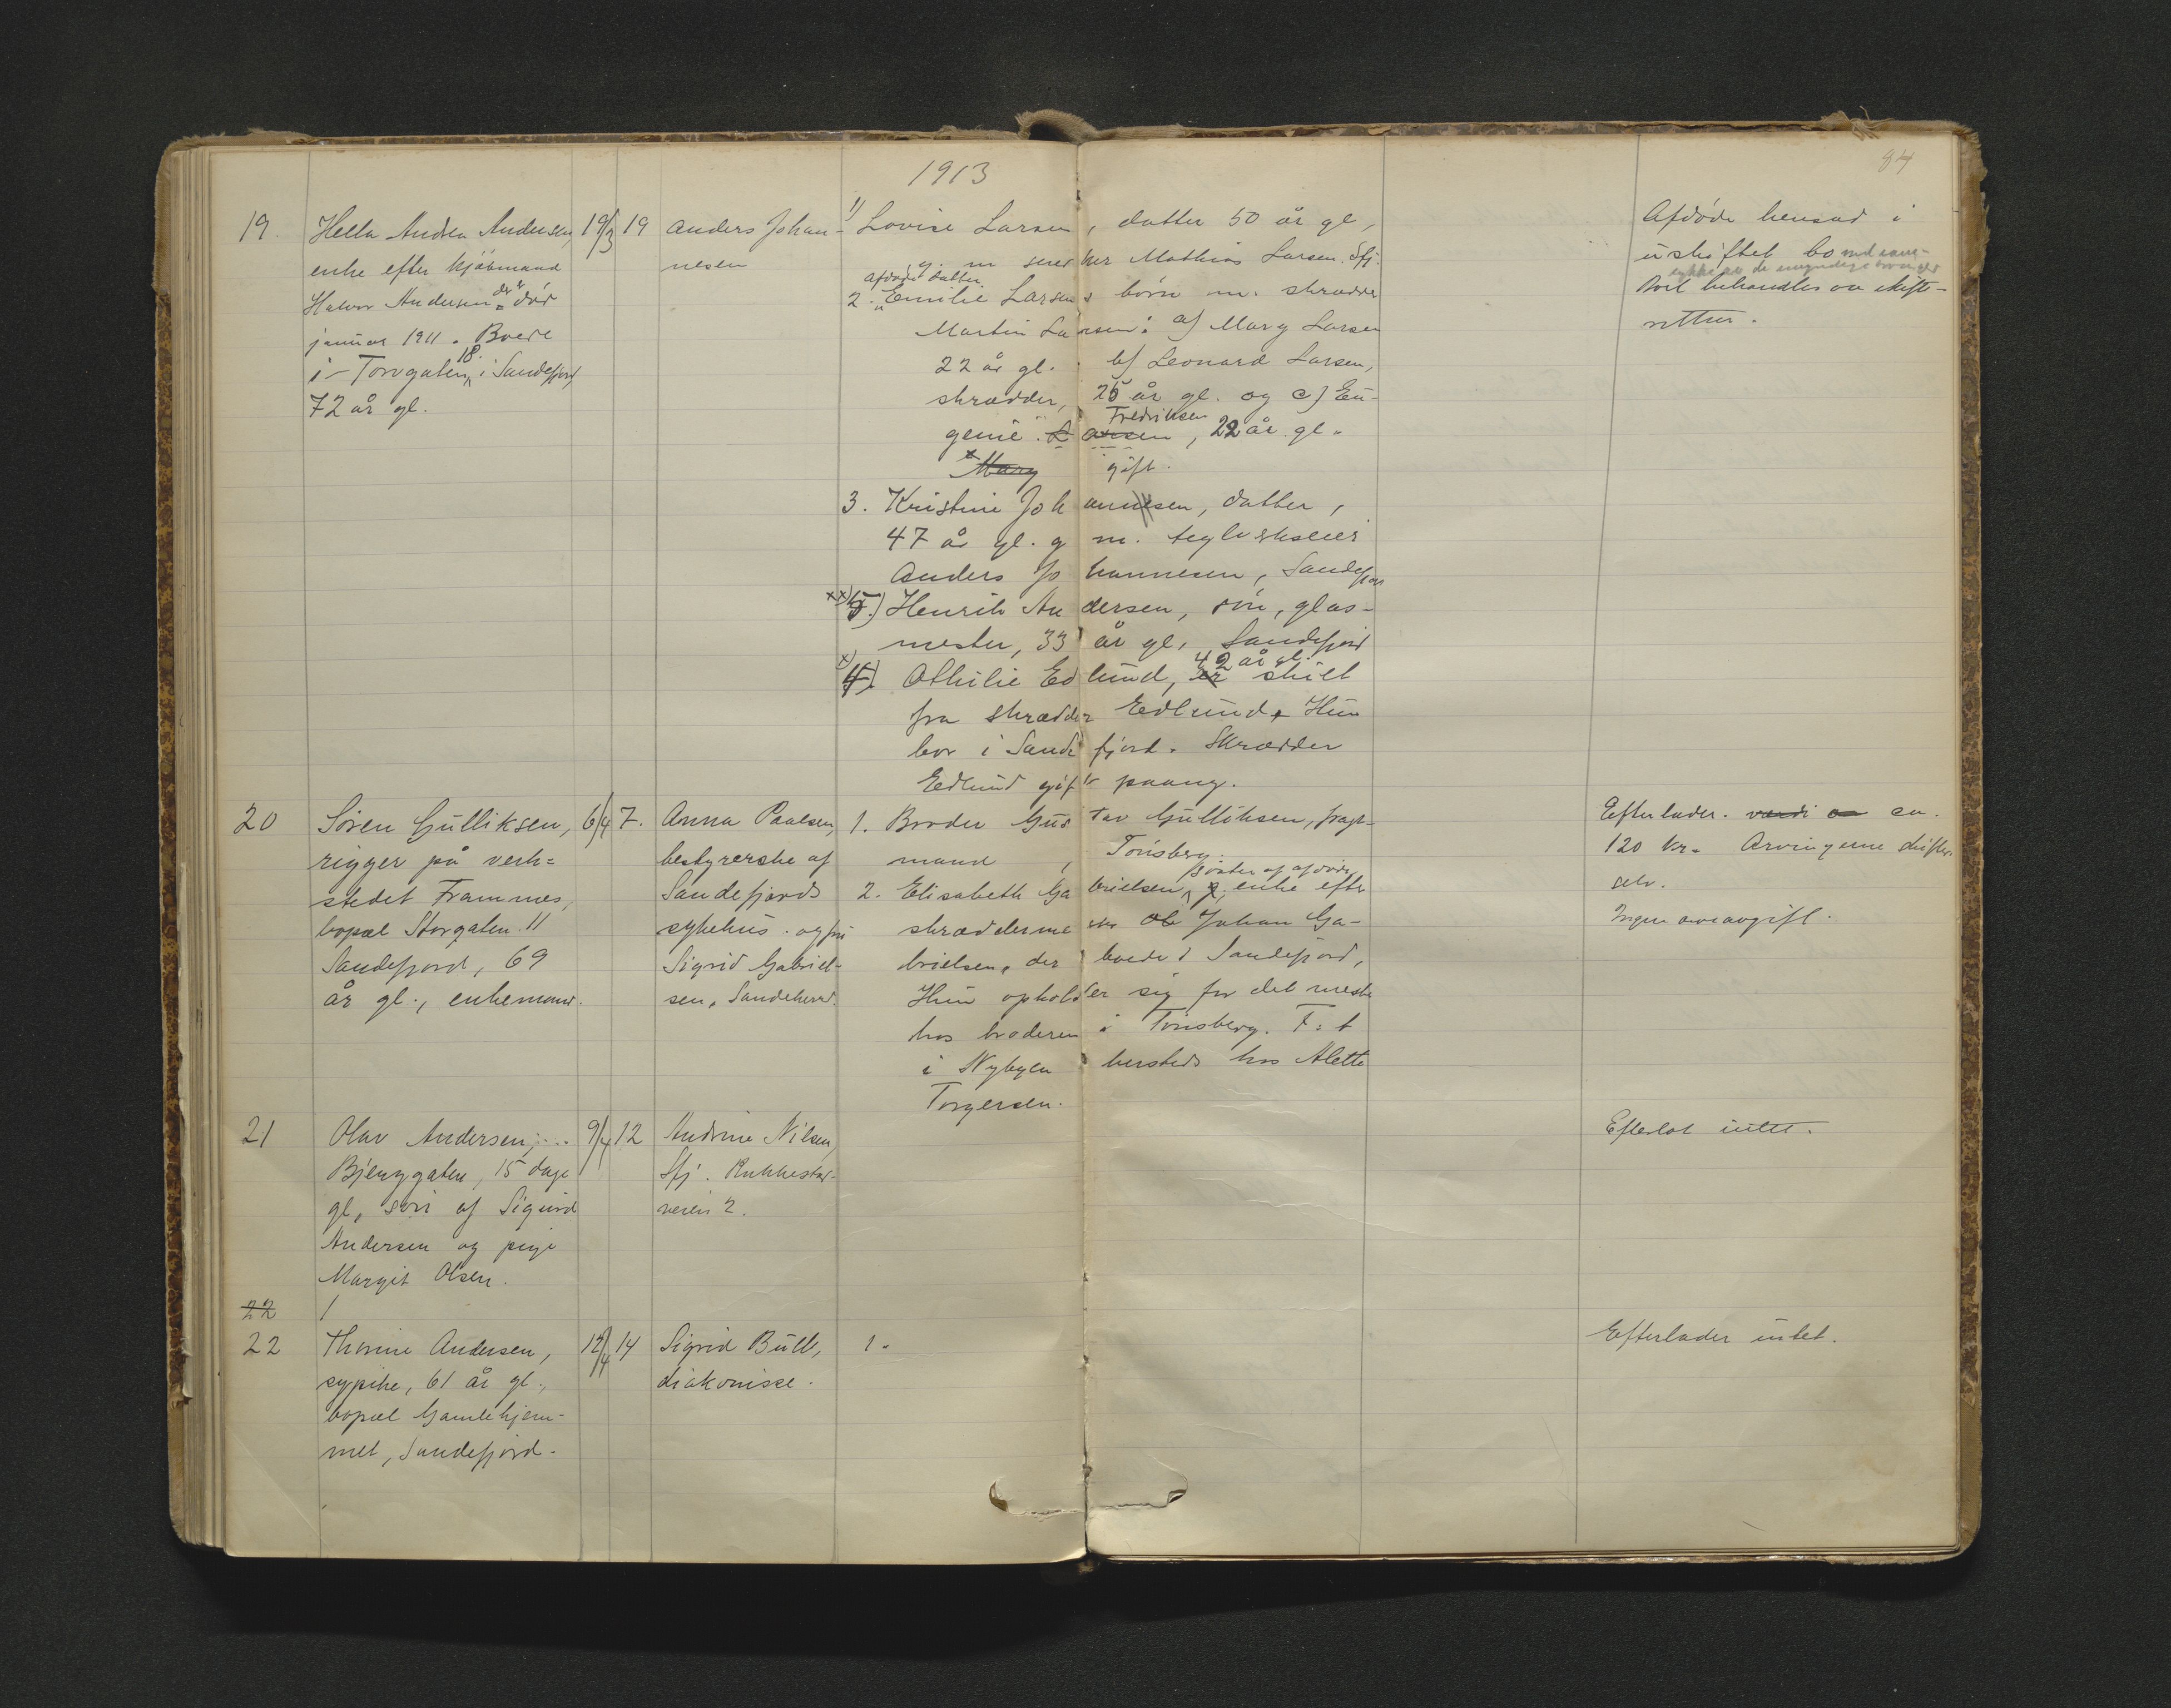 1913
84
19. Hella Andrea Andersen, 19/3 19 Anders Johan-
nesen
enke efter kjøbmand
Halvor Andersen der er død
januar 1911. Boede
i Torvgaten 18. i Sandefjord,
72 år gl.
1) Lovise Larsen, datter 50 år gl,
g. m. Mathias Larsen. Sfj.
afdøde datter
2. Emilie Larsens børn m. skrædder
Martin Larsen: a) Mary Larsen
22 år gl. b) Leonard Larsen,
skrædder, 25 år gl. og c) Eu-
Fredriksen
genie Larsen, 22 år gl.
Mary gift.
3. Kristine Johannesen, datter,
47 år gl. g m. teglverkseier
Anders Johannesen, Sandefjord
xx) 5.) Henrik Andersen, søn, glas-
mester, 33 år gl, Sandefjord
42 år gl.
x) 4) Othilie Edlund, er skilt
fra skrædder Edlund. Hun
bor i Sandefjord. Skrædder
Edlund gift paany.
Afdøde hensad i
uskiftet bo med
Boet behandles av skifte-
retten.
20 Søren Gulliksen, 6/4 7. Anna Paulsen,
rigger på verk=
stedet Framnæs,
bopæl Storgaten 11
Sandefjord, 69
år gl., enkemand.
bestyrerske af
Sandefjords
sykehus. og frk
Sigrid Gabriel-
sen, Sandeherred.
1. Broder Gustav Gulliksen, fragt-
mand, Tønsberg.
søster af afdøde
2. Elisabeth Gabrielsen, enke efter
skræddermester Ole Johan Ga-
brielsen, der boede i Sandefjord,
Hun opholder sig for det meste
hos broderen i Tønsberg. F: t
i Nybyen hersteds hos Alette
Torgersen.
Efterlader. værdi ca.
120 kr. Arvingerne skifter
selv.
Ingen arveavgift.
21 Olav Andersen, 9/4 12 Andrine Nilsen,
Bjerggaten, 15 dage
gl, søn af Sigurd
Andersen og pige
Margit Olsen.
Sfj.
veien 2.
Efterlot intet.
22
22 Thorine Andersen, 12/4 14 Sigrid Bull, 1.
sypike, 61 år gl.,
bopæl Gamlehjem-
met, Sandefjord.
diakonisse.
Efterlader intet.